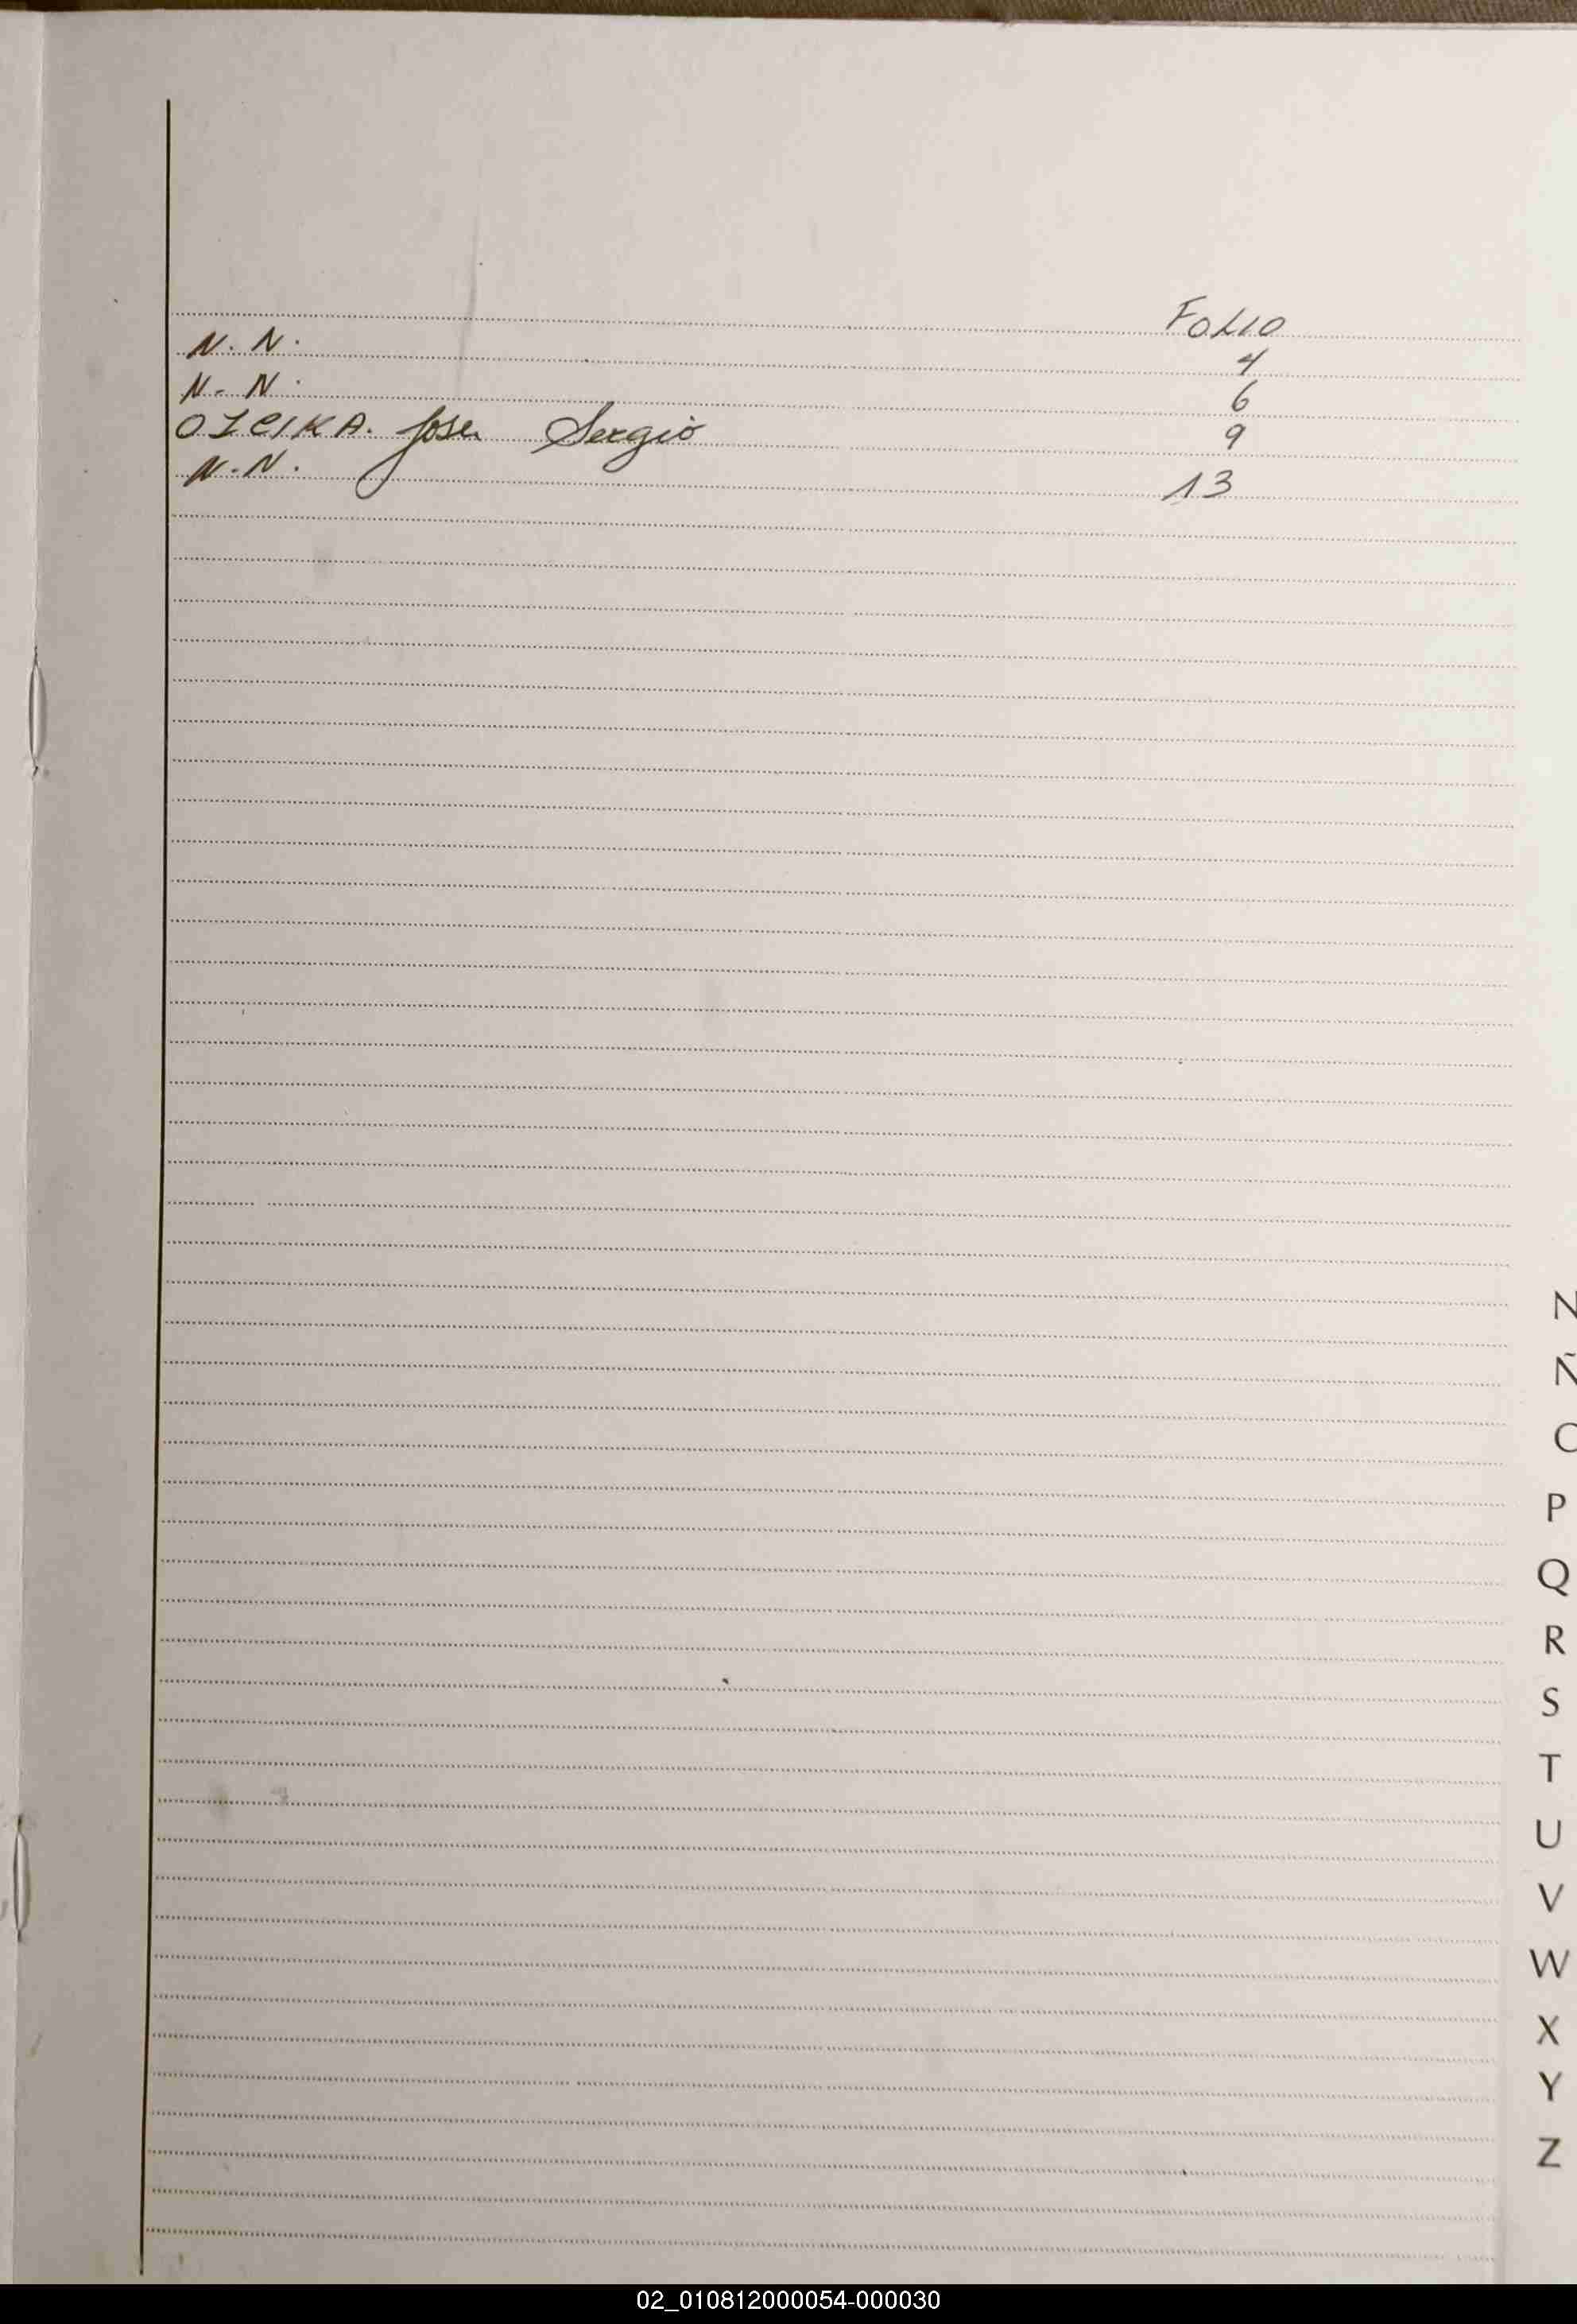 FOLIO
N. N. 4
N. N. 6
OZCIKA. Jose Sergio 9
N. N. 13
N
Ñ
O
P
Q
R
S
T
U
V
W
X
Y
Z
02_010812000054-000030